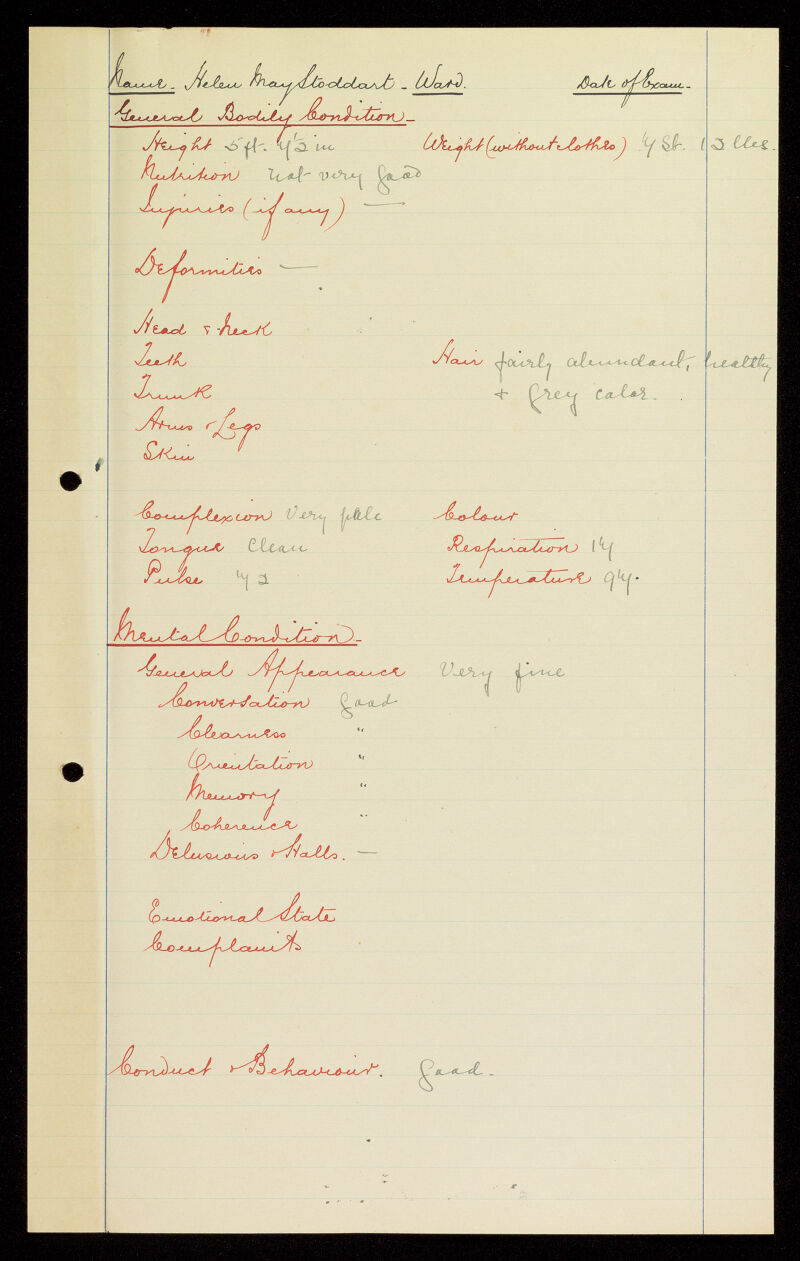 Name - Helen May Stoddart - Ward. Date of Exam -
General Bodily Condition -
Height 5 ft. in Weight (without clothes) St. 13 lbs.
Nutrition not very good
Injuries (if any) —
Deformities —
Head & Neck
Teeth Hair fairly abundant, healthy
Trunk & grey color.
Arms & Legs
Skin
Complexion Very pale Colour
Tongue Clean Respiration
Pulse Temperature
Mental Condition -
General Appearance Very fine
Conversation good
Clearness "
Orientation "
Memory "
Coherence "
Delusions & Halls. —
Emotional State
Complaints
Conduct & Behaviour. good -